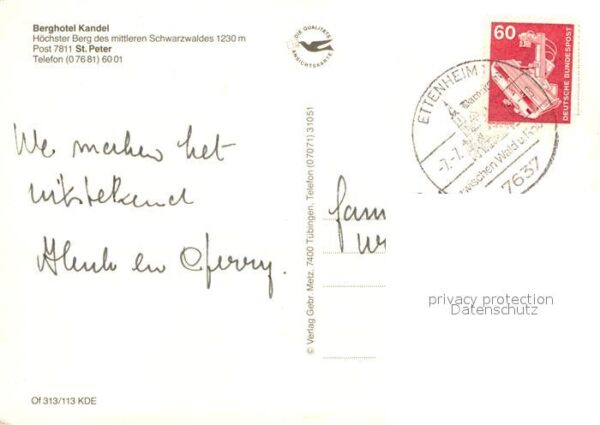 Berghotel Kandel
Höchster Berg des mittleren Schwarzwaldes 1230 m
Post 7811 St. Peter
Telefon (0 76 81) 60 01
DIE QUALITÄTS ANSICHTSKARTE
60
DEUTSCHE BUNDESPOST
ETTENHEIM
-7.-7.
zwischen Wald u.
7637
We maken het
uitstekend
Henk en Gerry.
fam
© Verlag Gebr. Metz, 7400 Tübingen, Telefon (07071) 31051
privacy protection
Datenschutz
Of 313/113 KDE